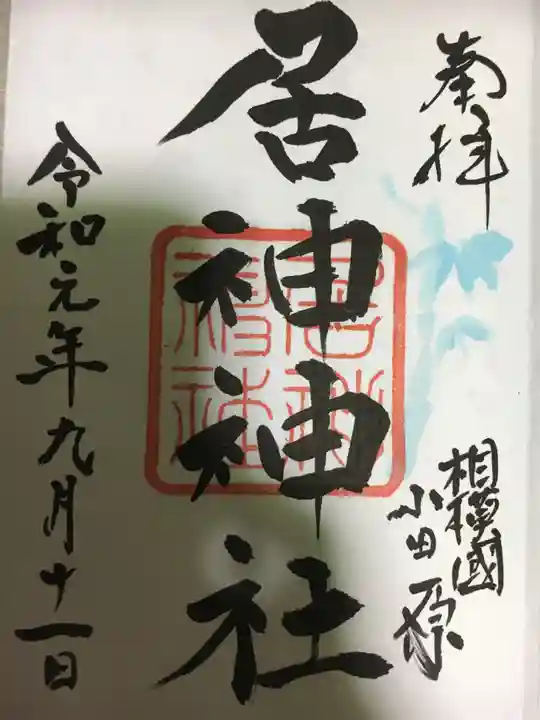 奉拝
相模國
小田原
居神神社
居神
神社
令和元年九月十一日